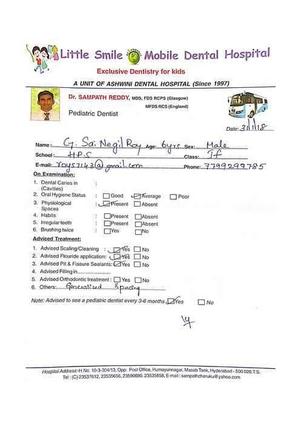 Little Smile Mobile Dental Hospital
Exclusive Dentistry for kids
A UNIT OF ASHWINI DENTAL HOSPITAL (Since 1997)
Dr. SAMPATH REDDY, MDS, FDS RCPS (Glasgow)
MFDS RCS (England)
Pediatric Dentist
Date:
Name: G. Sai Negil Roy Age: 6yrs Sex: Male
School: HPS Class:
E-mail: roys7143@gmail.com Phone: 7799299785
On Examination:
1. Dental Caries in (Cavities) :
2. Oral Hygiene Status : Good Average Poor
3. Physiological Spaces : Present Absent
4. Habits : Present Absent
5. Irregular teeth : Present Absent
6. Brushing twice : Yes No
Advised Treatment:
1. Advised Scaling/Cleaning : Yes No
2. Advised Flouride application: Yes No
3. Advised Pit & Fissure Sealants: Yes No
4. Advised Filling in
5. Advised Orthodontic treatment : Yes No
6. Others: Generalised Spacing
Note: Advised to see a pediatric dentist every 3-6 months Yes No
Hospital Address: H.No. 10-3-304/13, Opp. Post Office, Humayunnagar, Masab Tank, Hyderabad - 500 028.T.S.
Tel : (C) 23537612, 23535659, 23590690, 23535858, E-mail : sampathcharuku@yahoo.com